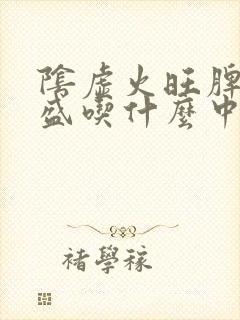 陰虛火旺脾
盛喫什麼中
褚學稼